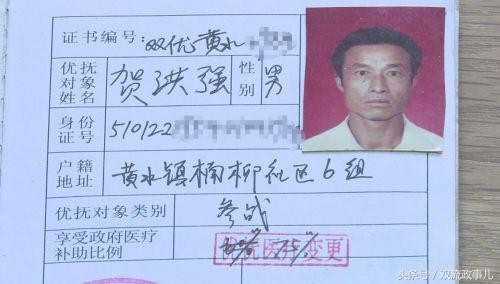 证书编号: 双优黄水
优抚对象姓名 贺洪强 性别 男
身份证号 510122
户籍地址 黄水镇楠柳社区6组
优抚对象类别 参战
享受政府医疗补助比例
医疗变更
头条号 / 双流政事儿